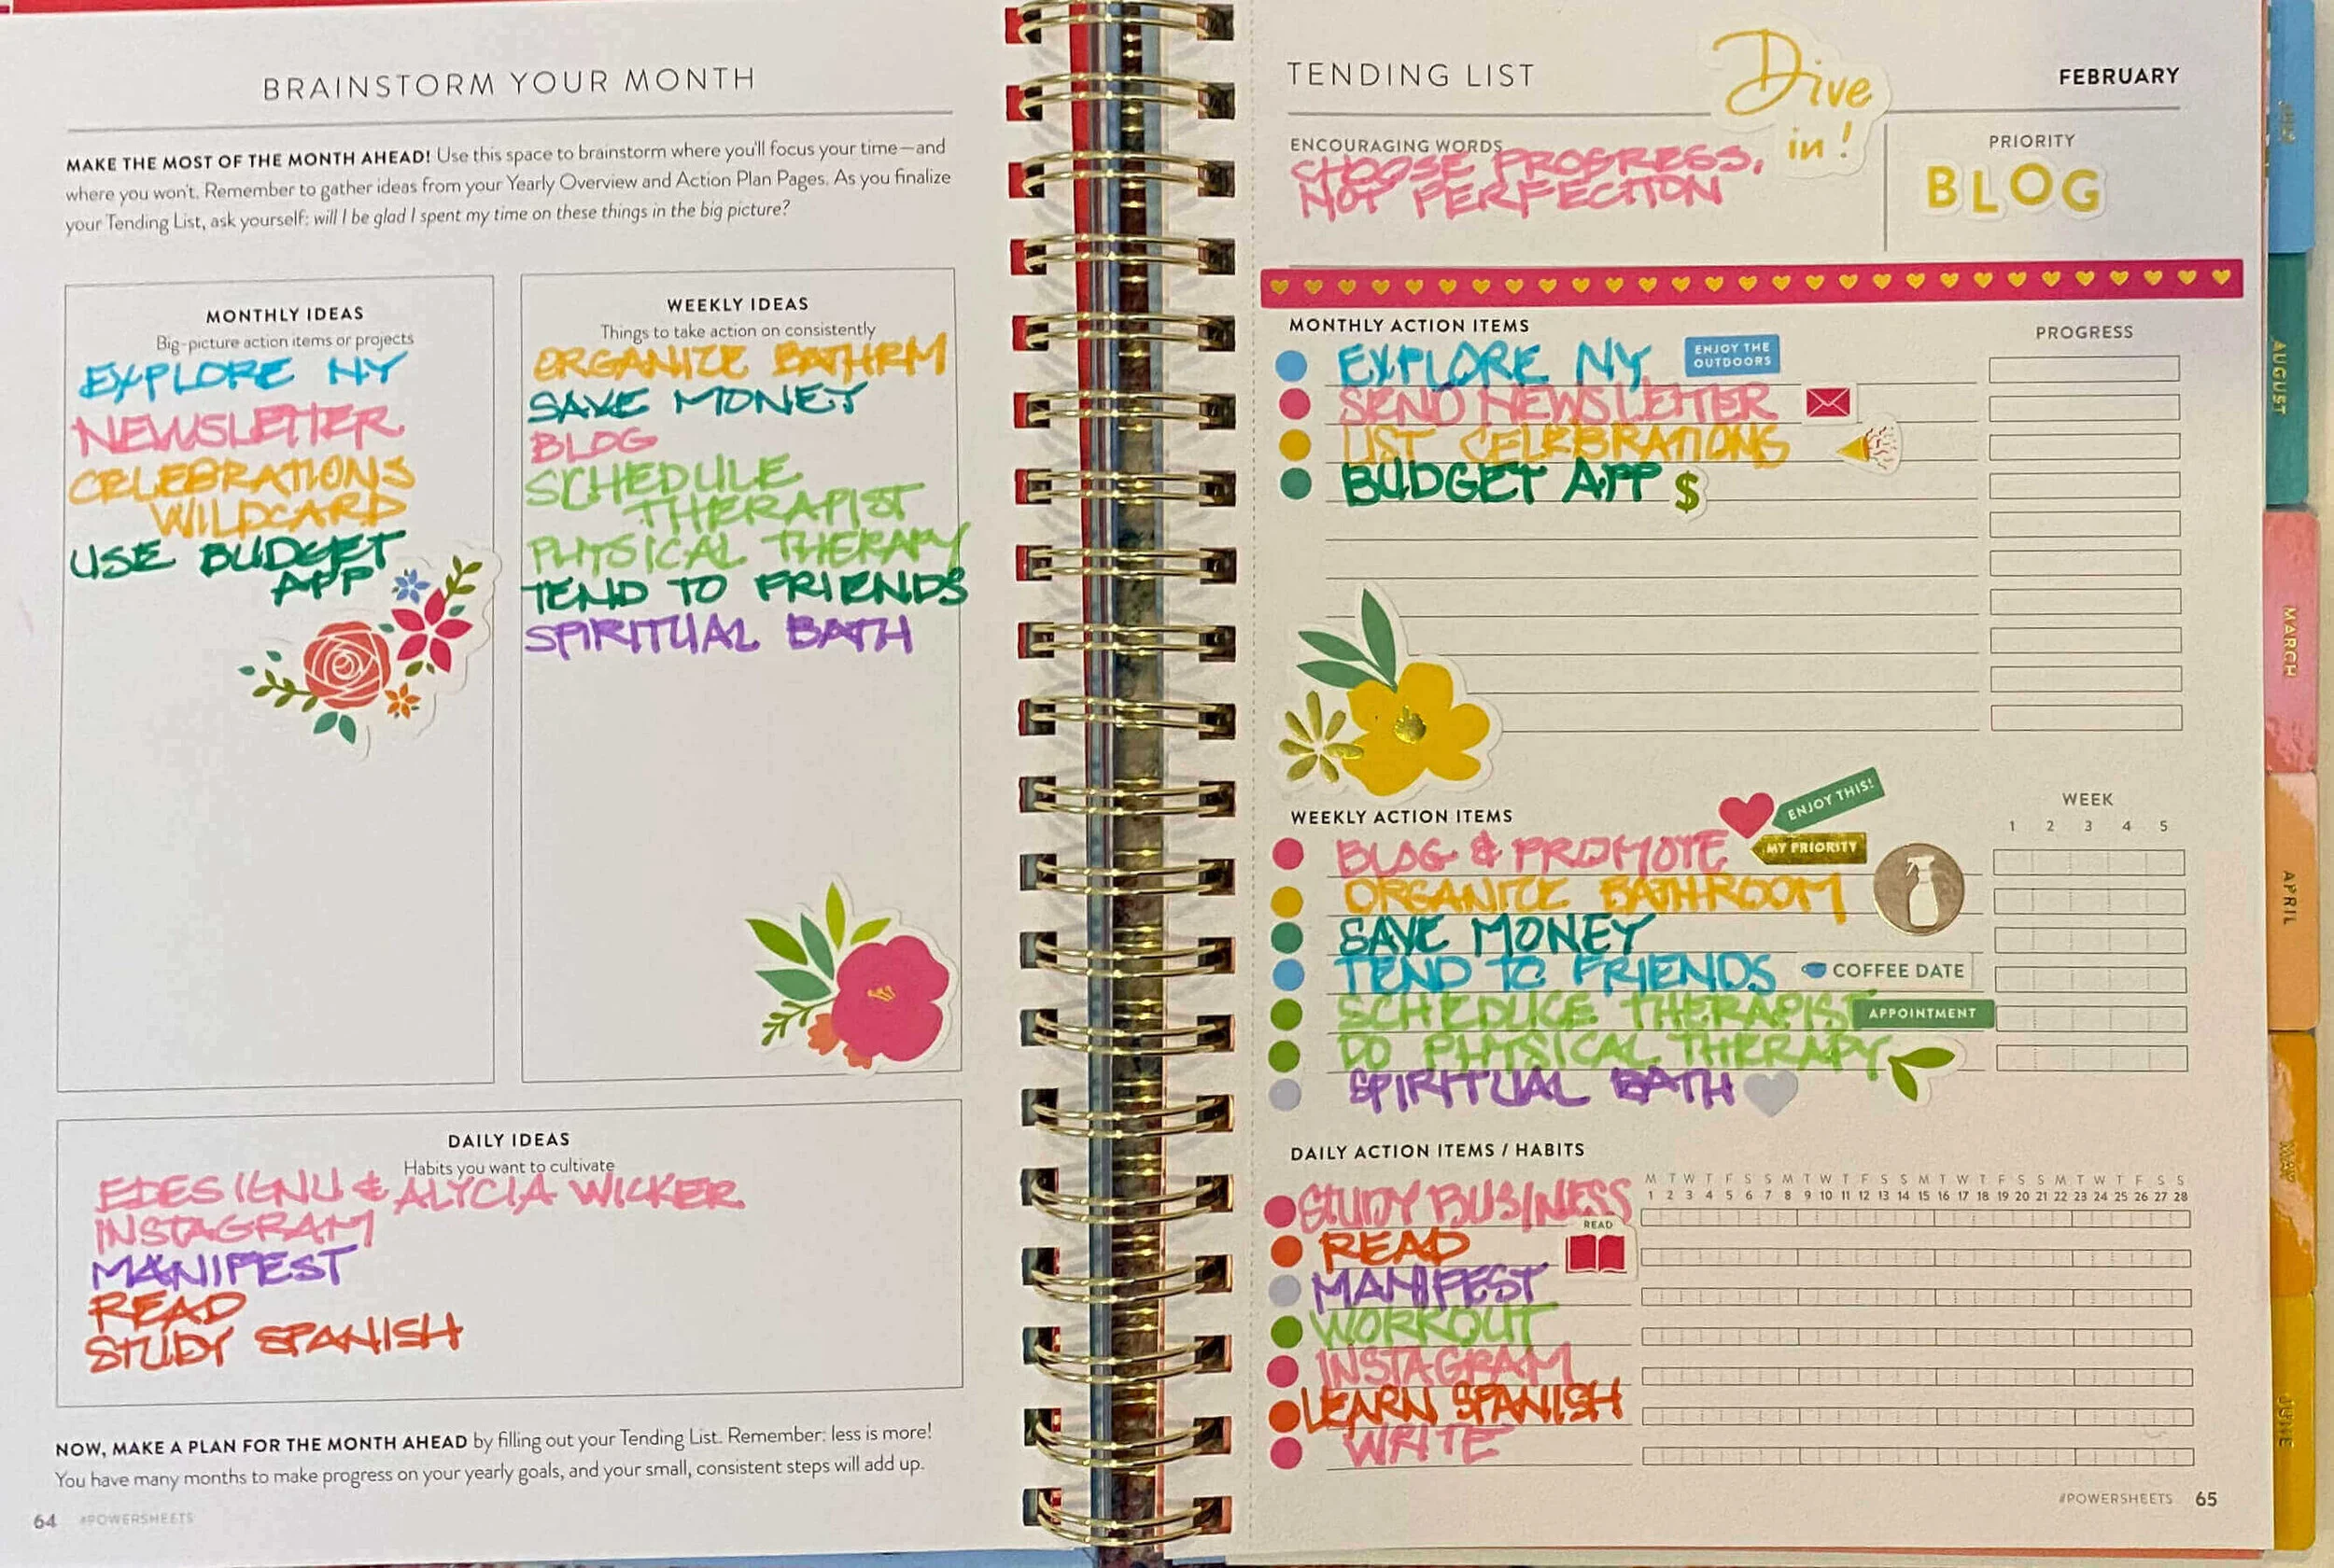 BRAINSTORM YOUR MONTH
MAKE THE MOST OF THE MONTH AHEAD! Use this space to brainstorm where you'll focus your time—and
where you won't. Remember to gather ideas from your Yearly Overview and Action Plan Pages. As you finalize
your Tending List, ask yourself: will I be glad I spent my time on these things in the big picture?
MONTHLY IDEAS
Big-picture action items or projects
EXPLORE NY
NEWSLETTER
CELEBRATIONS
WILDCARD
USE BUDGET
APP
WEEKLY IDEAS
Things to take action on consistently
ORGANIZE BATHRM
SAVE MONEY
BLOG
SCHEDULE
THERAPIST
PHYSICAL THERAPY
TEND TO FRIENDS
SPIRITUAL BATH
DAILY IDEAS
Habits you want to cultivate
EDESIGNU & ALYCIA WICKER
INSTAGRAM
MANIFEST
READ
STUDY SPANISH
NOW, MAKE A PLAN FOR THE MONTH AHEAD by filling out your Tending List. Remember: less is more!
You have many months to make progress on your yearly goals, and your small, consistent steps will add up.
64 #POWERSHEETS
TENDING LIST
Dive
in!
FEBRUARY
ENCOURAGING WORDS
CHOOSE PROGRESS,
NOT PERFECTION
PRIORITY
BLOG
MONTHLY ACTION ITEMS
PROGRESS
EXPLORE NY
ENJOY THE
OUTDOORS
SEND NEWSLETTER
LIST CELEBRATIONS
BUDGET APP $
WEEKLY ACTION ITEMS
ENJOY THIS!
WEEK
1 2 3 4 5
BLOG & PROMOTE
MY PRIORITY
ORGANIZE BATHROOM
SAVE MONEY
TEND TO FRIENDS
COFFEE DATE
SCHEDULE THERAPIST
APPOINTMENT
DO PHYSICAL THERAPY
SPIRITUAL BATH
DAILY ACTION ITEMS / HABITS
M T W T F S S M T W T F S S M T W T F S S M T W T F S S
1 2 3 4 5 6 7 8 9 10 11 12 13 14 15 16 17 18 19 20 21 22 23 24 25 26 27 28
STUDY BUSINESS
READ
READ
MANIFEST
WORKOUT
INSTAGRAM
LEARN SPANISH
WRITE
#POWERSHEETS 65
AUGUST
MARCH
APRIL
MAY
JUNE